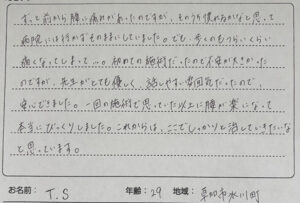 ずっと前から腰に痛みがあったのですが、そのうち慣れるかなと思って
病院には行かずそのままにしていました。でも、歩くのもつらいくらい
痛くなってしまって…。初めての施術だったので不安が大きかった
のですが、先生がとても優しく、話しやすい雰囲気だったので、
安心できました。一回の施術で思っていた以上に腰が楽になって
本当にびっくりしました。これからは、ここでしっかりと治していきたいな
と思っています。
お名前： T.S 年齢： 29 地域： 草加市氷川町